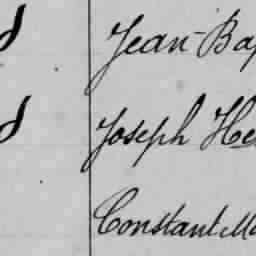 Jean-Bap
Joseph He
Constant Ma